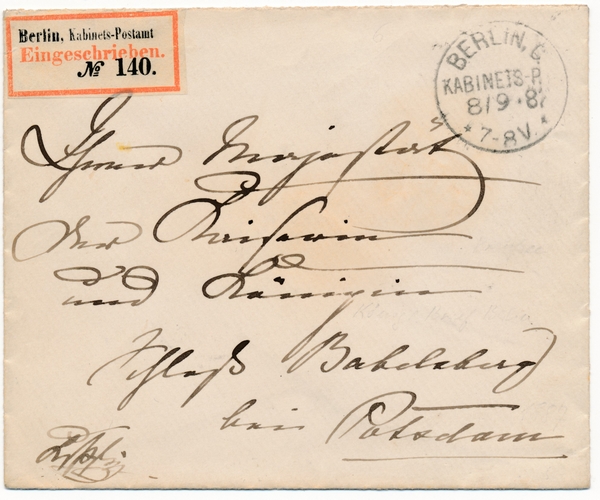 Berlin, Kabinets-Postamt
Eingeschrieben.
№ 140.
BERLIN, C.
KABINETS-P.
8/9 · 8
* 7-8V. *
Ihrer Majestät
der Kaiserin
und Königin
Schloß Babelsberg
bei Potsdam